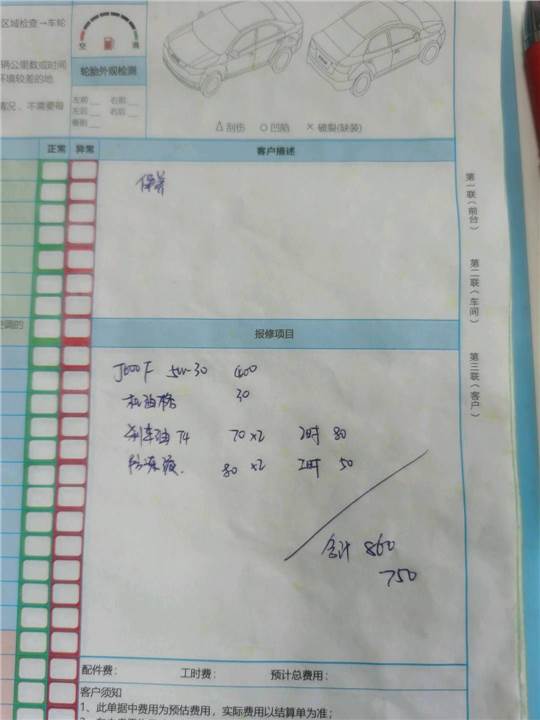 区域检查→车轮
辆公里数或时间
环境较差的地
情况，不需要每
空 满
轮胎外观检测
左前 右前
左后 右后
备胎
△ 刮伤 ○ 凹陷 × 破裂(缺装)
正常 异常 客户描述
保养
第一联（前台）
第二联（车间）
第三联（客户）
空调的
报修项目
J600F 5W-30 400
机油格 30
刹车油 T4 70×2 工时 80
防冻液. 80×2 工时 50
合计 860
750
配件费： 工时费： 预计总费用：
客户须知
1、此单据中费用为预估费用，实际费用以结算单为准；